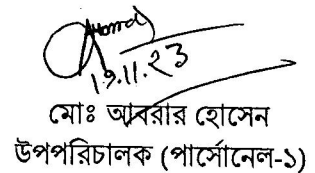 ১৯.১১.২৩
মোঃ আবরার হোসেন
উপপরিচালক (পার্সোনেল-১)